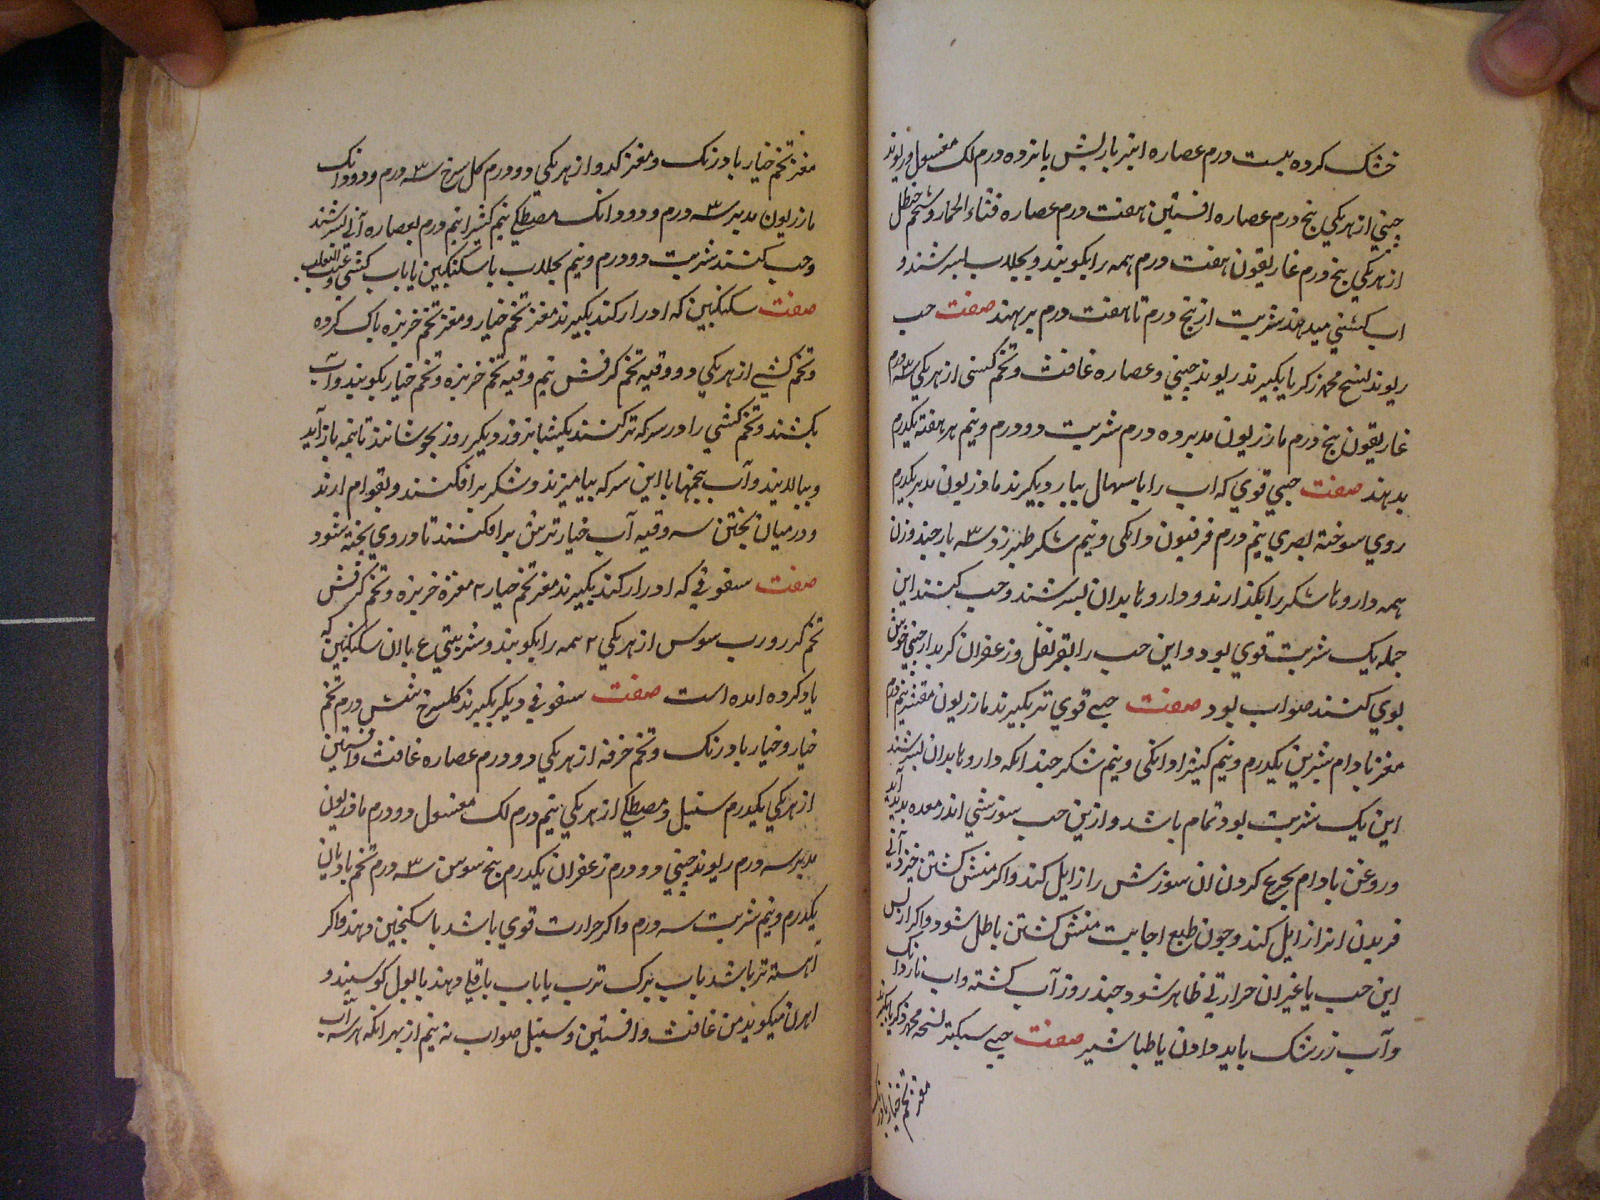 خشک کرده بیست درم عصاره انبرباریش پانزده درم لک مغسول وریوند
چینی از هریکی پنج درم عصاره افسنتین هفت درم عصاره قثاء الحمار و شحم حنظل
از هریکی پنج درم غاریقون هفت درم همه را بکوبند و بجلاب بسرشند و
اب کشنی میدهند شربت از پنج درم تا هفت درم بر بهند صفت حب
ریوند نسخ محمد زکریا بکیرند ریوند چینی و عصاره غافت و تخم کسنی از هریکی ۳ درم
غاریقون پنج درم مازریون مدبر ده درم شربت دو درم و نیم هر هفته یکدرم
بدهند صفت حبی قوی که اب را باسهال بیارد بکیرند مازریون مدبر یکدرم
روی سوخته بصری نیم درم فرفیون دانکی و نیم شکر طبرزد سه بار چند وزن
همه داروها شکر را بکدازند و داروها بدان بسرشند و حب کنند این
جمله یک شربت قوی بود و این حب را بقرنفل و زعفران کرد دارچینی خوش
بوی کنند صواب بود صفت حبی قوی تر بکیرند مازریون مقشر نیم درم
مغز بادام شیرین یکدرم و نیم کثیرا دانکی و نیم شکر چندانکه داروها بدان بسرشند
این یک شربت بود تمام باشد و ازین حب سوزشی اندر معده پدید آید
و روغن بادام بجرع کردن ان سوزش را زایل کند و اکر منش کشتن خیزد آبی
مزیدن انرا زایل کند و چون طبع اجابت منش کشتن باطل شود و اکر از پس
این حب یا غیر ان حرارتی ظاهر شود چند روز آب کشنه و اب نار دانک
و آب زرشک باید دادن یا طباشیر صفت حبی سبکتر نسخه محمد زکریا بکیرند
مغز تخم خیار بادرنک
مغز تخم خیار بادرنک و مغز کدو از هریکی دو درم کل سرخ سه درم و دو دانک
مازریون مدبر سه درم و دو دانک مصطکی نیم کثیرا نیم درم بعصاره آبی بسرشند
و حب کنند شربت دو درم و نیم بجلاب با سکنکبین یا باب کشنی و عنب الثعلب
صفت سکنکبین که ادرار کند بکیرند مغز تخم خیار و مغز تخم خربزه پاک کرده
و تخم کشنی از هریکی دو وقیه تخم کرفش نیم وقیه تخم خربزه و تخم خیار بکوبند و آب
بکشند و تخم کشنی را در سرکه تر کنند یکشبانروز دیکر روز بجوشانند تا بنیمه باز آید
و بپالایند و آب تخمها با این سرکه بیامیزند و شکر برافکنند و بقوام ارند
و در میان پختن سه وقیه آب خیار ترش برافکنند تا در وی پخته شود
صفت سفوفی که ادرار کند بکیرند مغز تخم خیار ۲ مغزه خربزه و تخم کرفش
تخم کرر و رب سوس از هریکی ۲ همه را بکوبند و شربتی ع باان سکنکبین که
یاد کرده امده است صفت سفوفی دیکر بکیرند کلسرخ شش درم تخم
خیار و خیار بادرنک و تخم خرفه از هریکی دو درم عصاره غافت و افسنتین
از هریکی یکدرم سنبل و مصطکی از هریکی نیم درم لک مغسول دو درم مازریون
مدبر سه درم ریوند چینی دو درم زعفران یکدرم بیخ سوس سه درم تخم بادیان
یکدرم و نیم شربت سه درم و اکر حرارت قوی باشد با سکنجبین دهند و اکر
آهسته تر باشد باب برک ترب یا باب باقلی دهند یا بول کوسپند و
اهرن میکوید من غافت و افسنتین و سنبل صواب نه بینم از بهر انکه هر سه آب